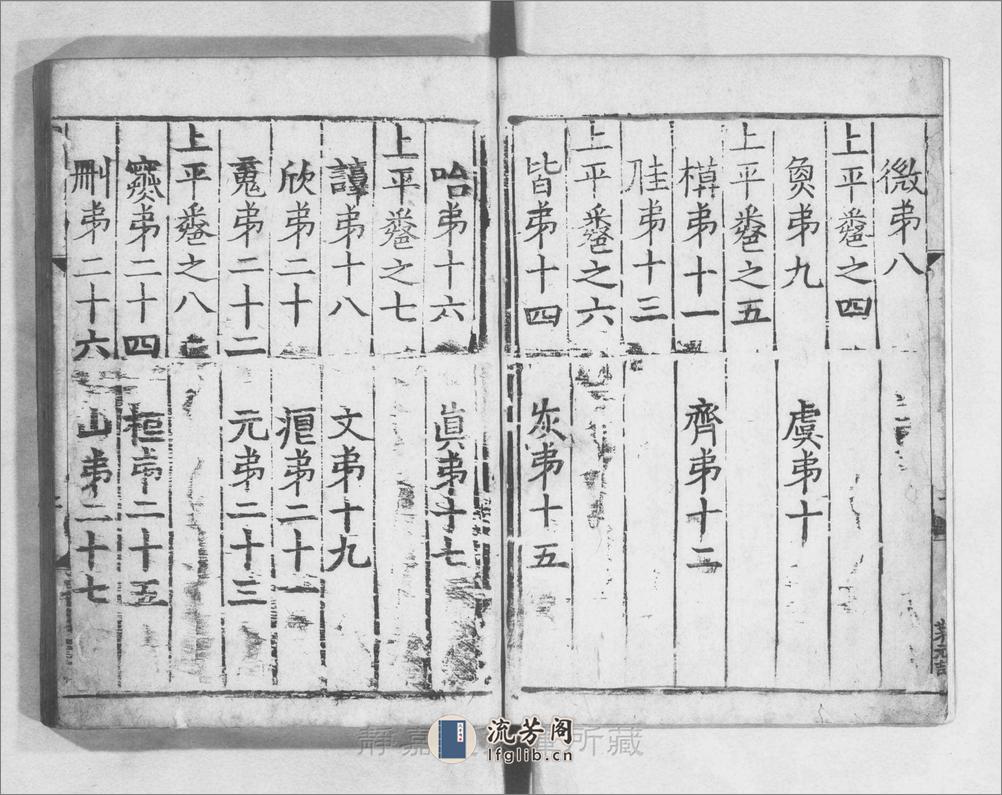 微弟八
上平卷之四
魚弟九
虞弟十
上平卷之五
模弟十一
齊弟十二
佳弟十三
上平卷之六
皆弟十四
灰弟十五
咍弟十六
眞弟十七
上平卷之七
諄弟十八
文弟十九
欣弟二十
痕弟二十一
䰟弟二十二
元弟二十三
上平卷之八
寒弟二十四
桓弟二十五
刪弟二十六
山弟二十七
流芳阁
lfglib.cn